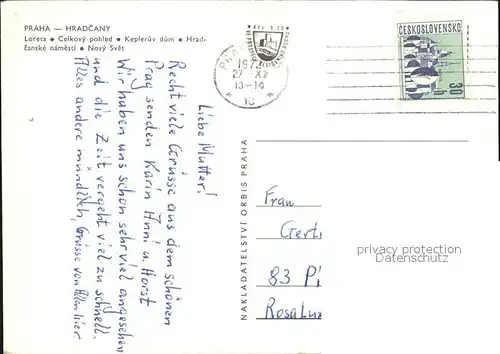 PRAHA — HRADČANY
Loreta • Celkový pohled • Keplerův dům • Hrad-
čanské náměstí • Nový Svět
Liebe Mutter!
Recht viele Grüsse aus dem schönen
Prag senden Karin Anni u. Horst
Wir haben uns schon sehr viel angesehen
und die Zeit vergeht viel zu schnell.
Alles andere mündlich, Grüsse von Allen hier
NAKLADATELSTVÍ ORBIS PRAHA
KČS 0,70
27.-XII
13-14
10
ČESKOSLOVENSKO
30
h
Frau
Gert
83 Pi
Rosa Lux
privacy protection
Datenschutz